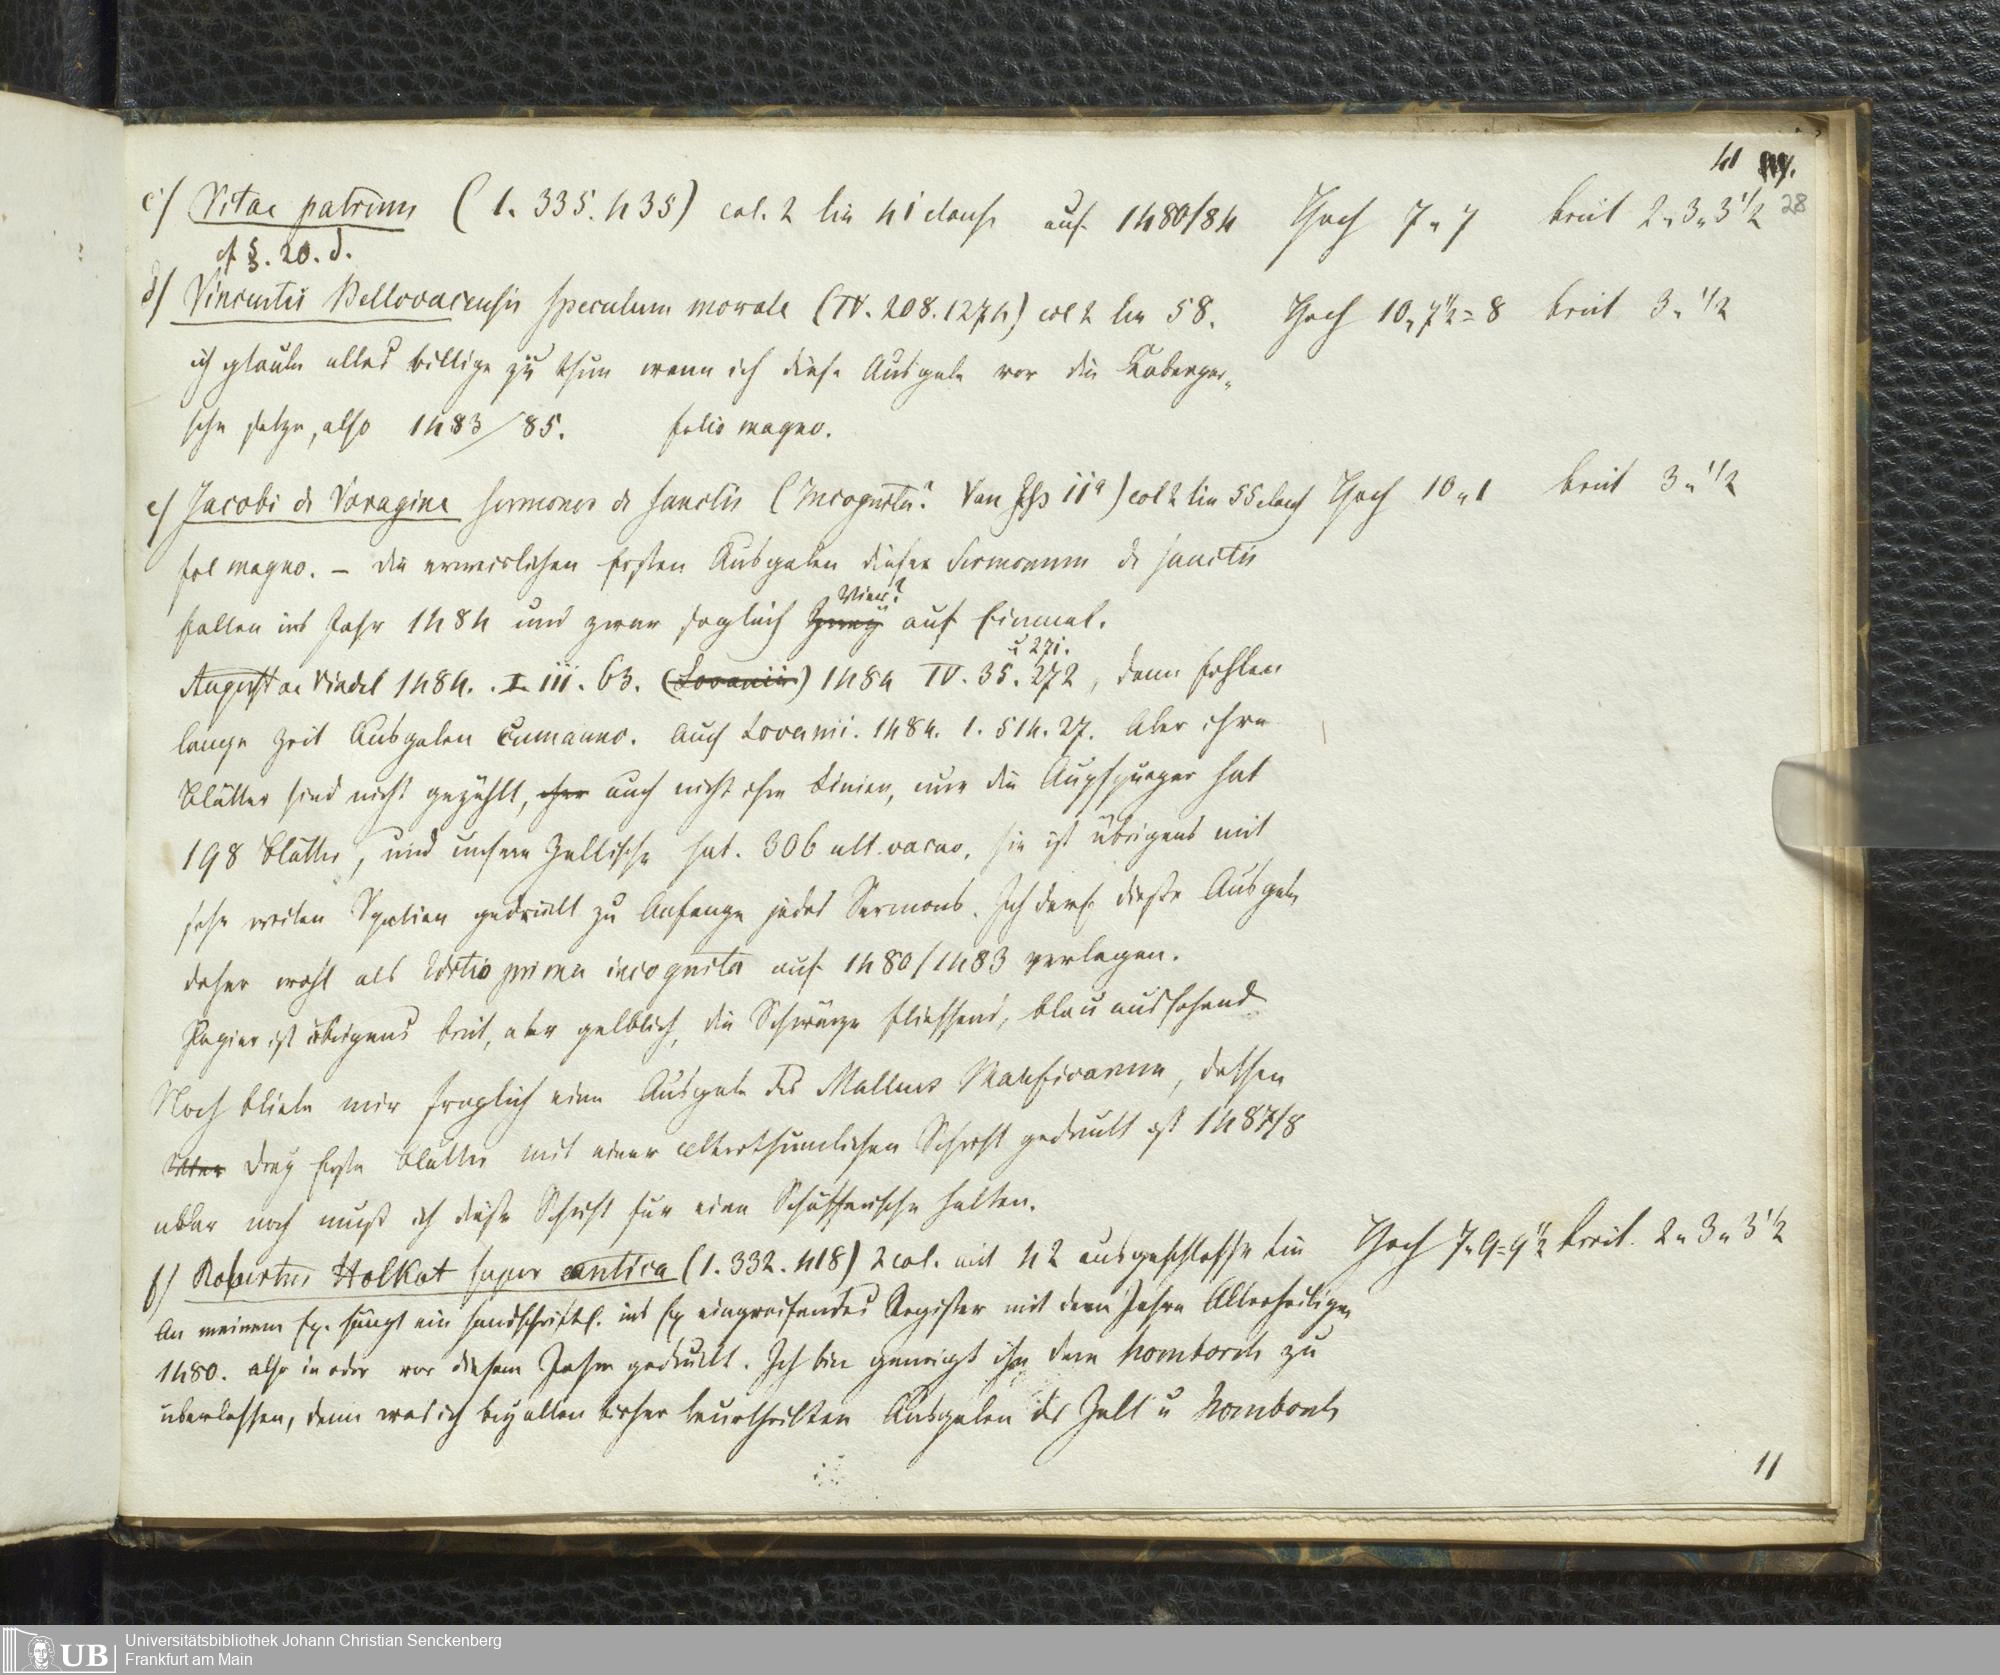 41
28
c) Vitae patrum (1. 335. 435) col. 2 lin 41 clause auf 1480/84 Hoch 7 " 7 breit 2 " 3 " 3 1/2
cf §. 20. d.
d) Vincentii Bellovacensis Speculum morale (IV. 208. 1274) col 2 lin 58. Hoch 10 " 7 1/2 = 8 breit 3 " 1/2
ich glaube alles billige zu thun wenn ich diese Ausgabe vor die Koberger-
sche setze, also 1483/85. folio magno.
e) Jacobi de Voragine Sermones de Sanctis (Incognita? Von iia) col 2 lin 55 Hoch 10 " 1 breit 3 " 1/2
fol magno. – die erweislichen Ersten Ausgaben dieser Sermonum de sanctis
fallen ins Jahr 1484 und zwar sogleich Zwey Vier? auf Einmal.
Augustae Vindel 1484. . I. iii. 63. (Lovanii) 1484 IV. 35. 272 u 271. , dann fehlen
lange Zeit Ausgaben cum anno. Auch Lovanii. 1484. 1. 514. 27. Aber ihre
Blätter sind nicht gezählt, auch nicht ihre Linien, nur die Augspurger hat
198 Blätter, und unsere Zellische hat. 306 ult. vacuo, sie ist übrigens mit
sehr weiten Spatien gedruckt zu Anfange jedes Sermons. Ich darf diese Ausgabe
daher wohl als Editio prima incognita auf 1480/1483 verlegen.
Papier ist übrigens breit, aber gelblich, die Schwärze fliessend, blau aussehend
Noch bliebe mir fraglich eine Ausgabe des Malleus Maleficarum, dessen
drey Erste Blätter mit einer alterthumlichen Schrift gedruckt ist 1487/8
aber noch muß ich diese Schrift für eine Schöfferische halten.
f) Robertus Holkot super cantica (1. 332. 418) 2 col. mit 42 ausgeschlosse Lin Hoch 7 " 9 = 9 1/2 breit. 2 " 3 " 3 1/2
An meinem Ex. hängt ein handschriftl. ins Ex eingreifendes Register mit dem Jahre Allerheiligen
1480. also in oder vor diesem Jahre gedruckt. Ich bin geneigt ihn dem homborch zu
überlassen, denn was ich bey allen bisher beurtheilten Ausgaben des Zell u homborch
11
Universitätsbibliothek Johann Christian Senckenberg
Frankfurt am Main
UB